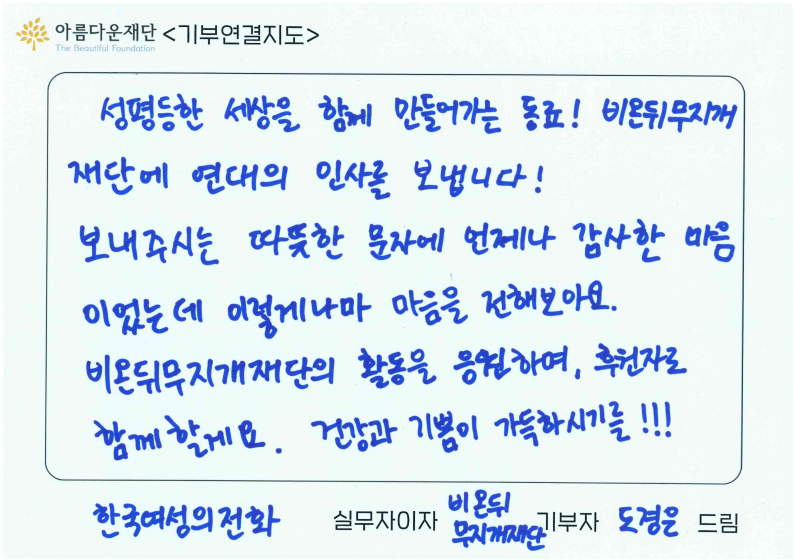 아름다운재단 <기부연결지도>
The Beautiful Foundation
성평등한 세상을 함께 만들어가는 동료! 비온뒤무지개
재단에 연대의 인사를 보냅니다!
보내주시는 따뜻한 문자에 언제나 감사한 마음
이었는데 이렇게나마 마음을 전해보아요.
비온뒤무지개재단의 활동을 응원하며, 후원자로
함께할게요. 건강과 기쁨이 가득하시기를!!!
한국여성의전화 실무자이자 비온뒤무지개재단 기부자 도경은 드림